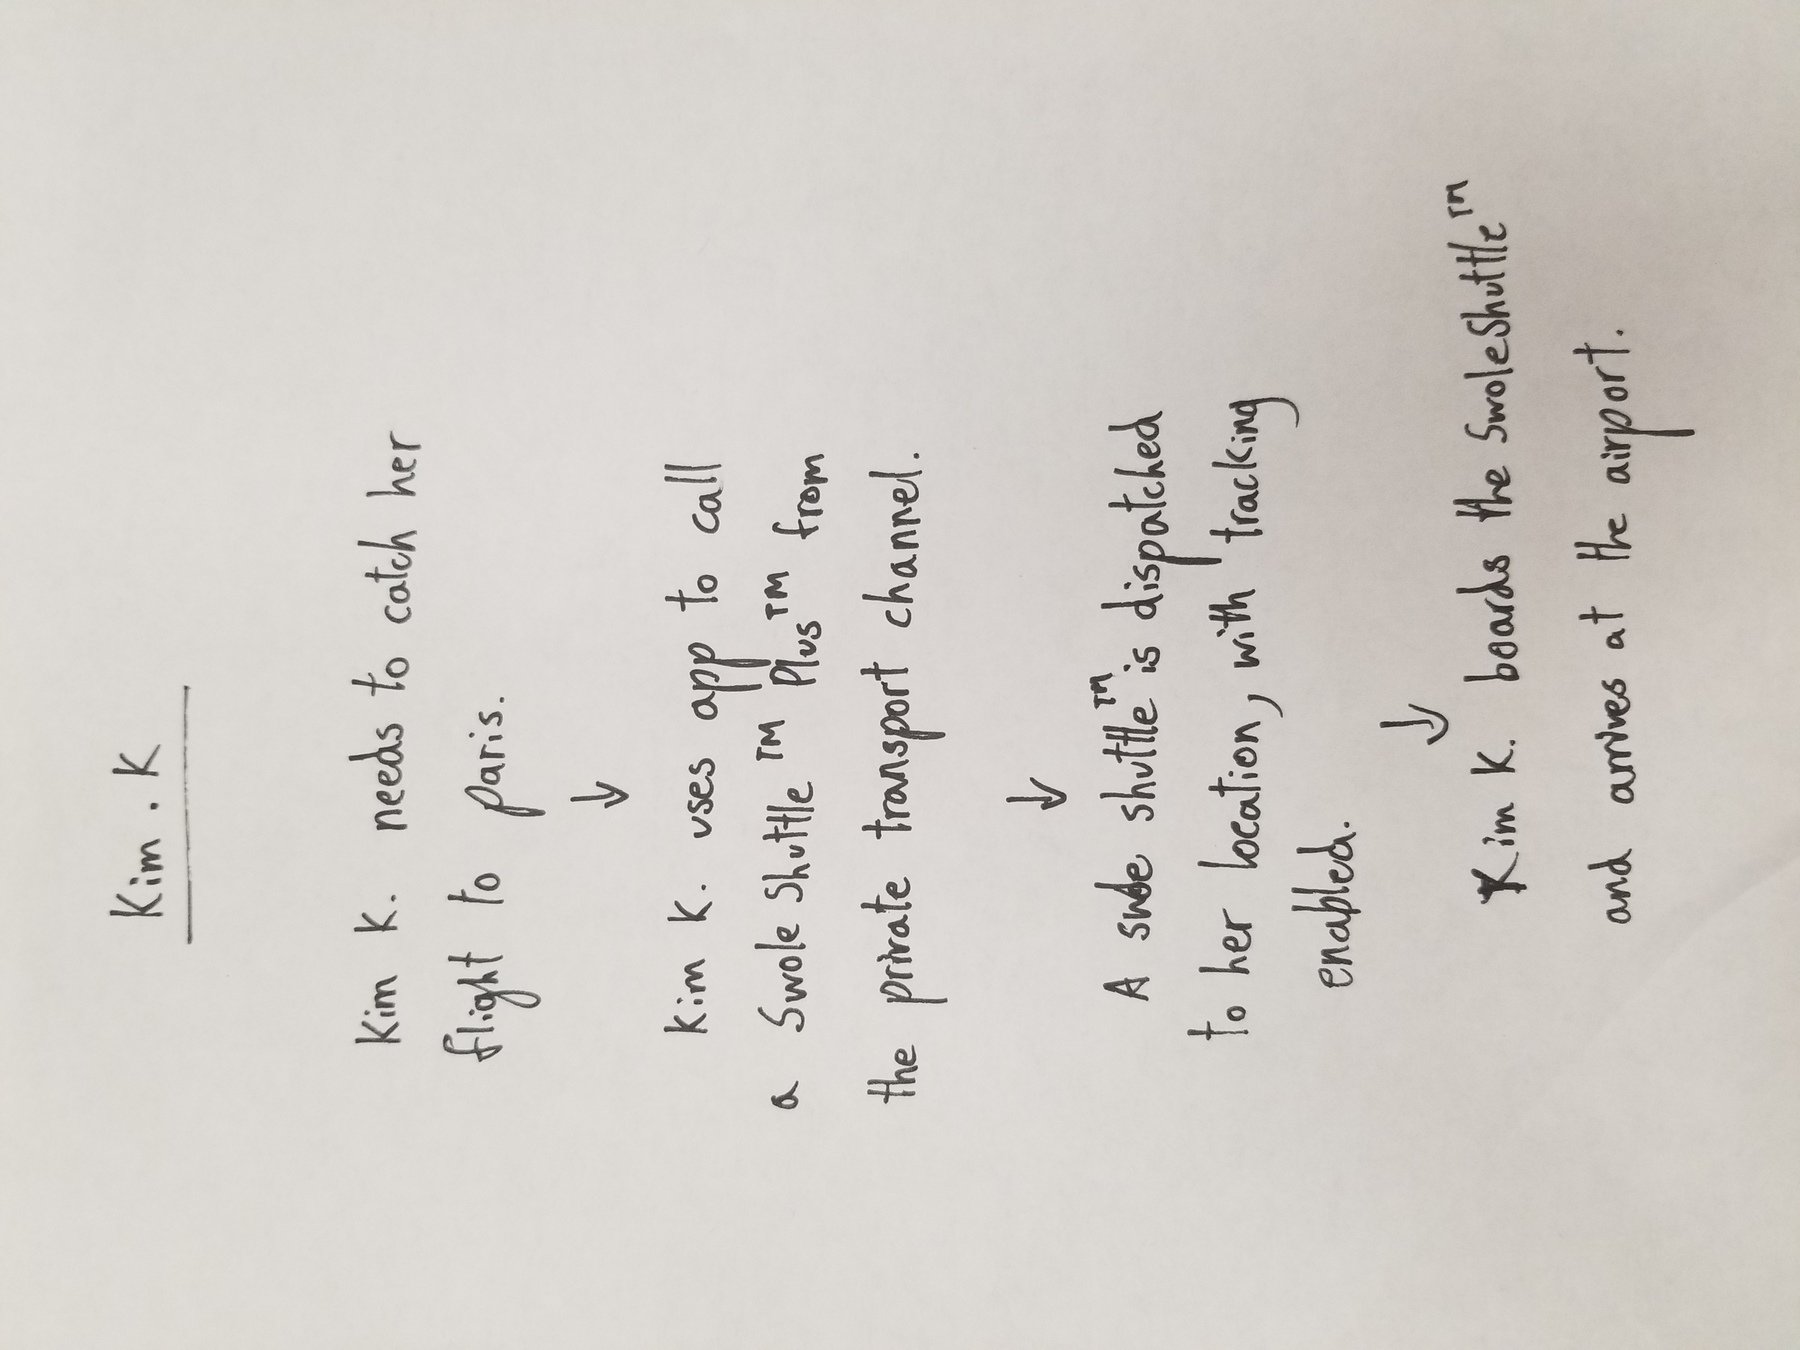 Kim . K
Kim K. needs to catch her
flight to paris.
↓
Kim K. uses app to call
a Swole Shuttle ™ Plus™ from
the private transport channel.
↓
A swole shuttle™ is dispatched
to her location, with tracking
enabled.
↓
Kim K. boards the SwoleShuttle™
and arrives at the airport.